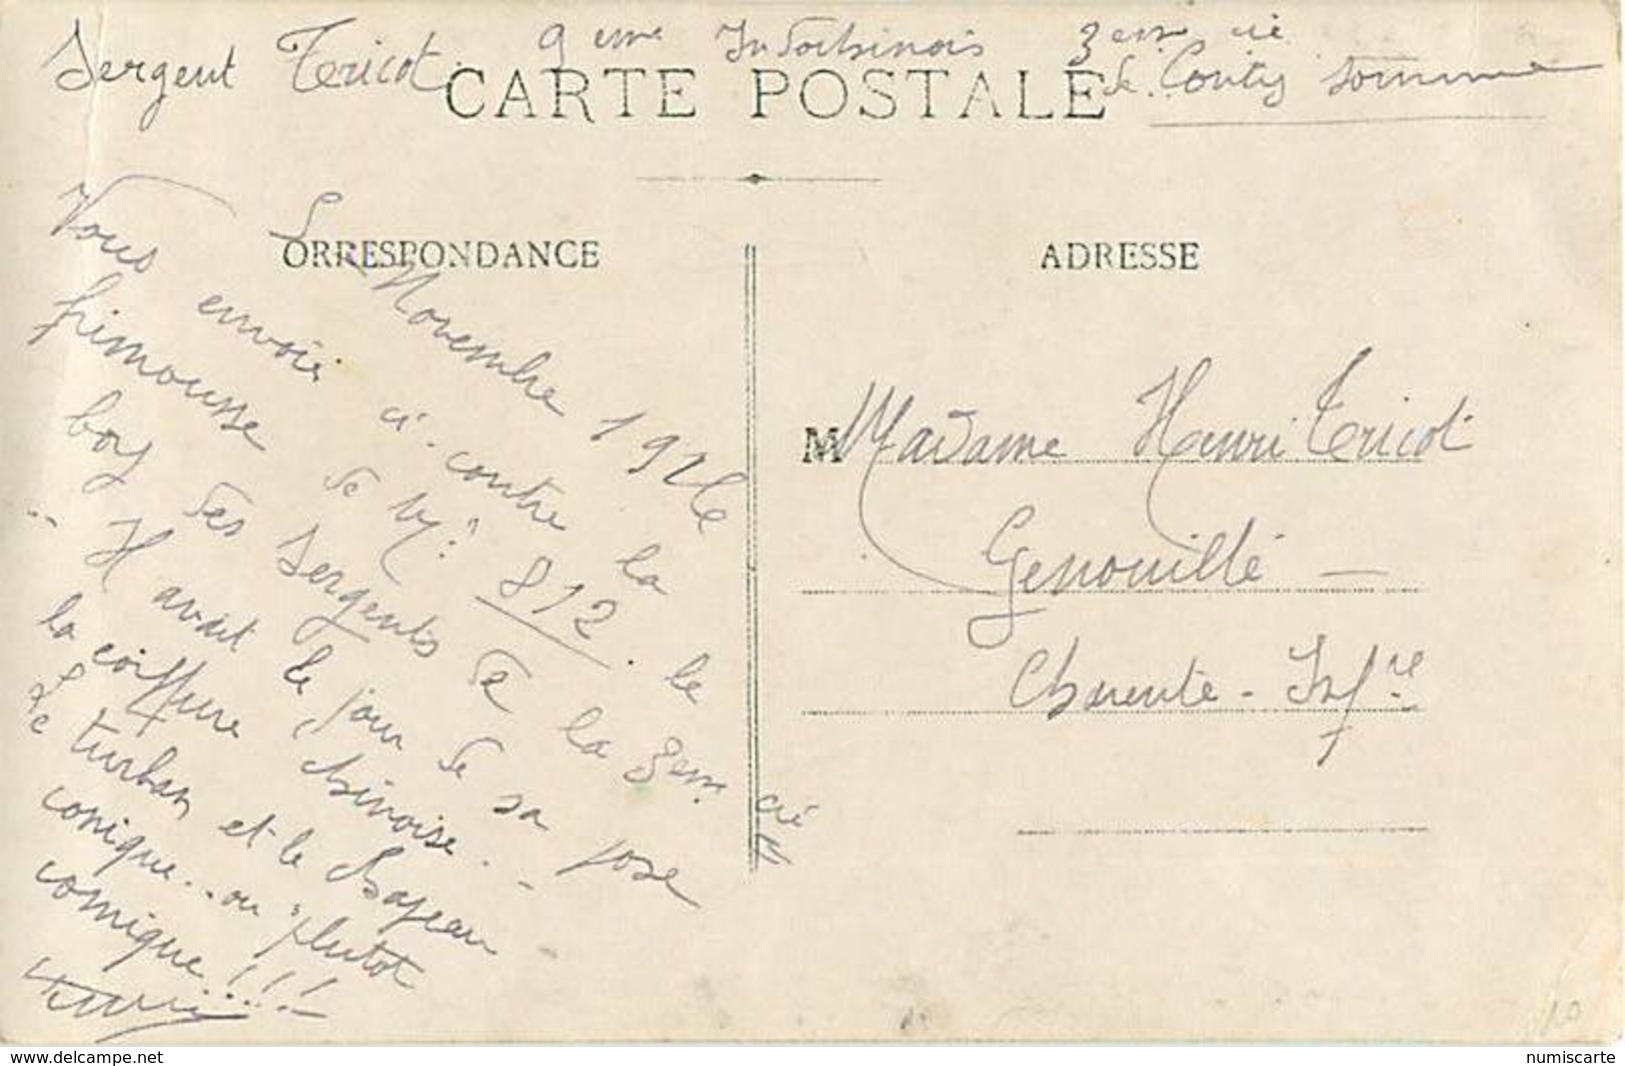 Sergent Tericot 9eme Indochinois 3eme cie
de Conty Somme
CARTE POSTALE
CORRESPONDANCE
ADRESSE
5 Novembre 1926
Vous envoie ci-contre la
frimousse de Ly: 812. le
boy des Sergents de la 3eme cie
.. Il avait le jour de sa pose
la coiffure chinoise. -
Le turban et le chapeau
conique.. ou plutot
comique!!!
Henri
M Madame Henri Tericot
Genouillé -
Charente-Infre
10
www.delcampe.net
numiscarte